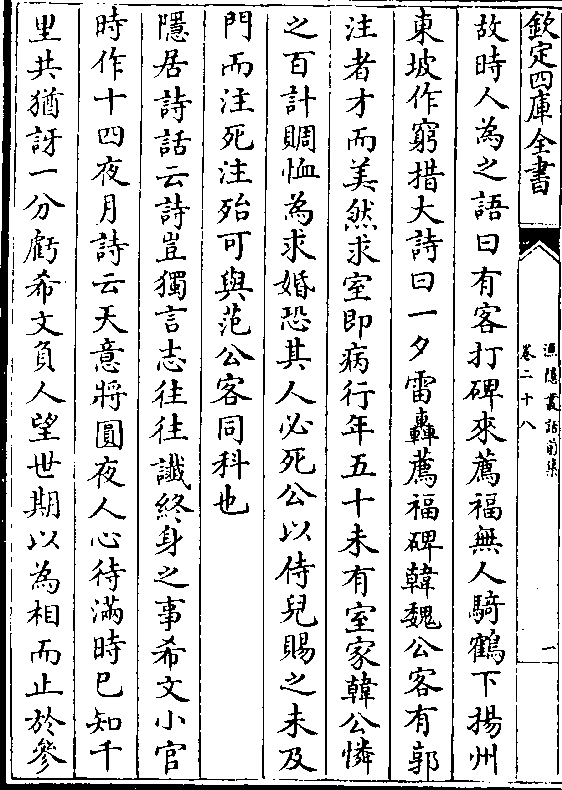 欽定四庫全書
漁隱叢話前集
卷二十八
一
故時人為之語曰有客打碑來薦福無人騎鶴下揚州
東坡作窮措大詩曰一夕雷轟薦福碑韓魏公客有郭
注者才而美然求室即病行年五十未有室家韓公憐
之百計賙恤為求婚恐其人必死公以侍兒賜之未及
門而注死注殆可與范公客同科也
隱居詩話云詩豈獨言志往往讖終身之事希文小官
時作十四夜月詩云天意將圓夜人心待滿時已知千
里共猶訝一分虧希文負人望世期以為相而止於參